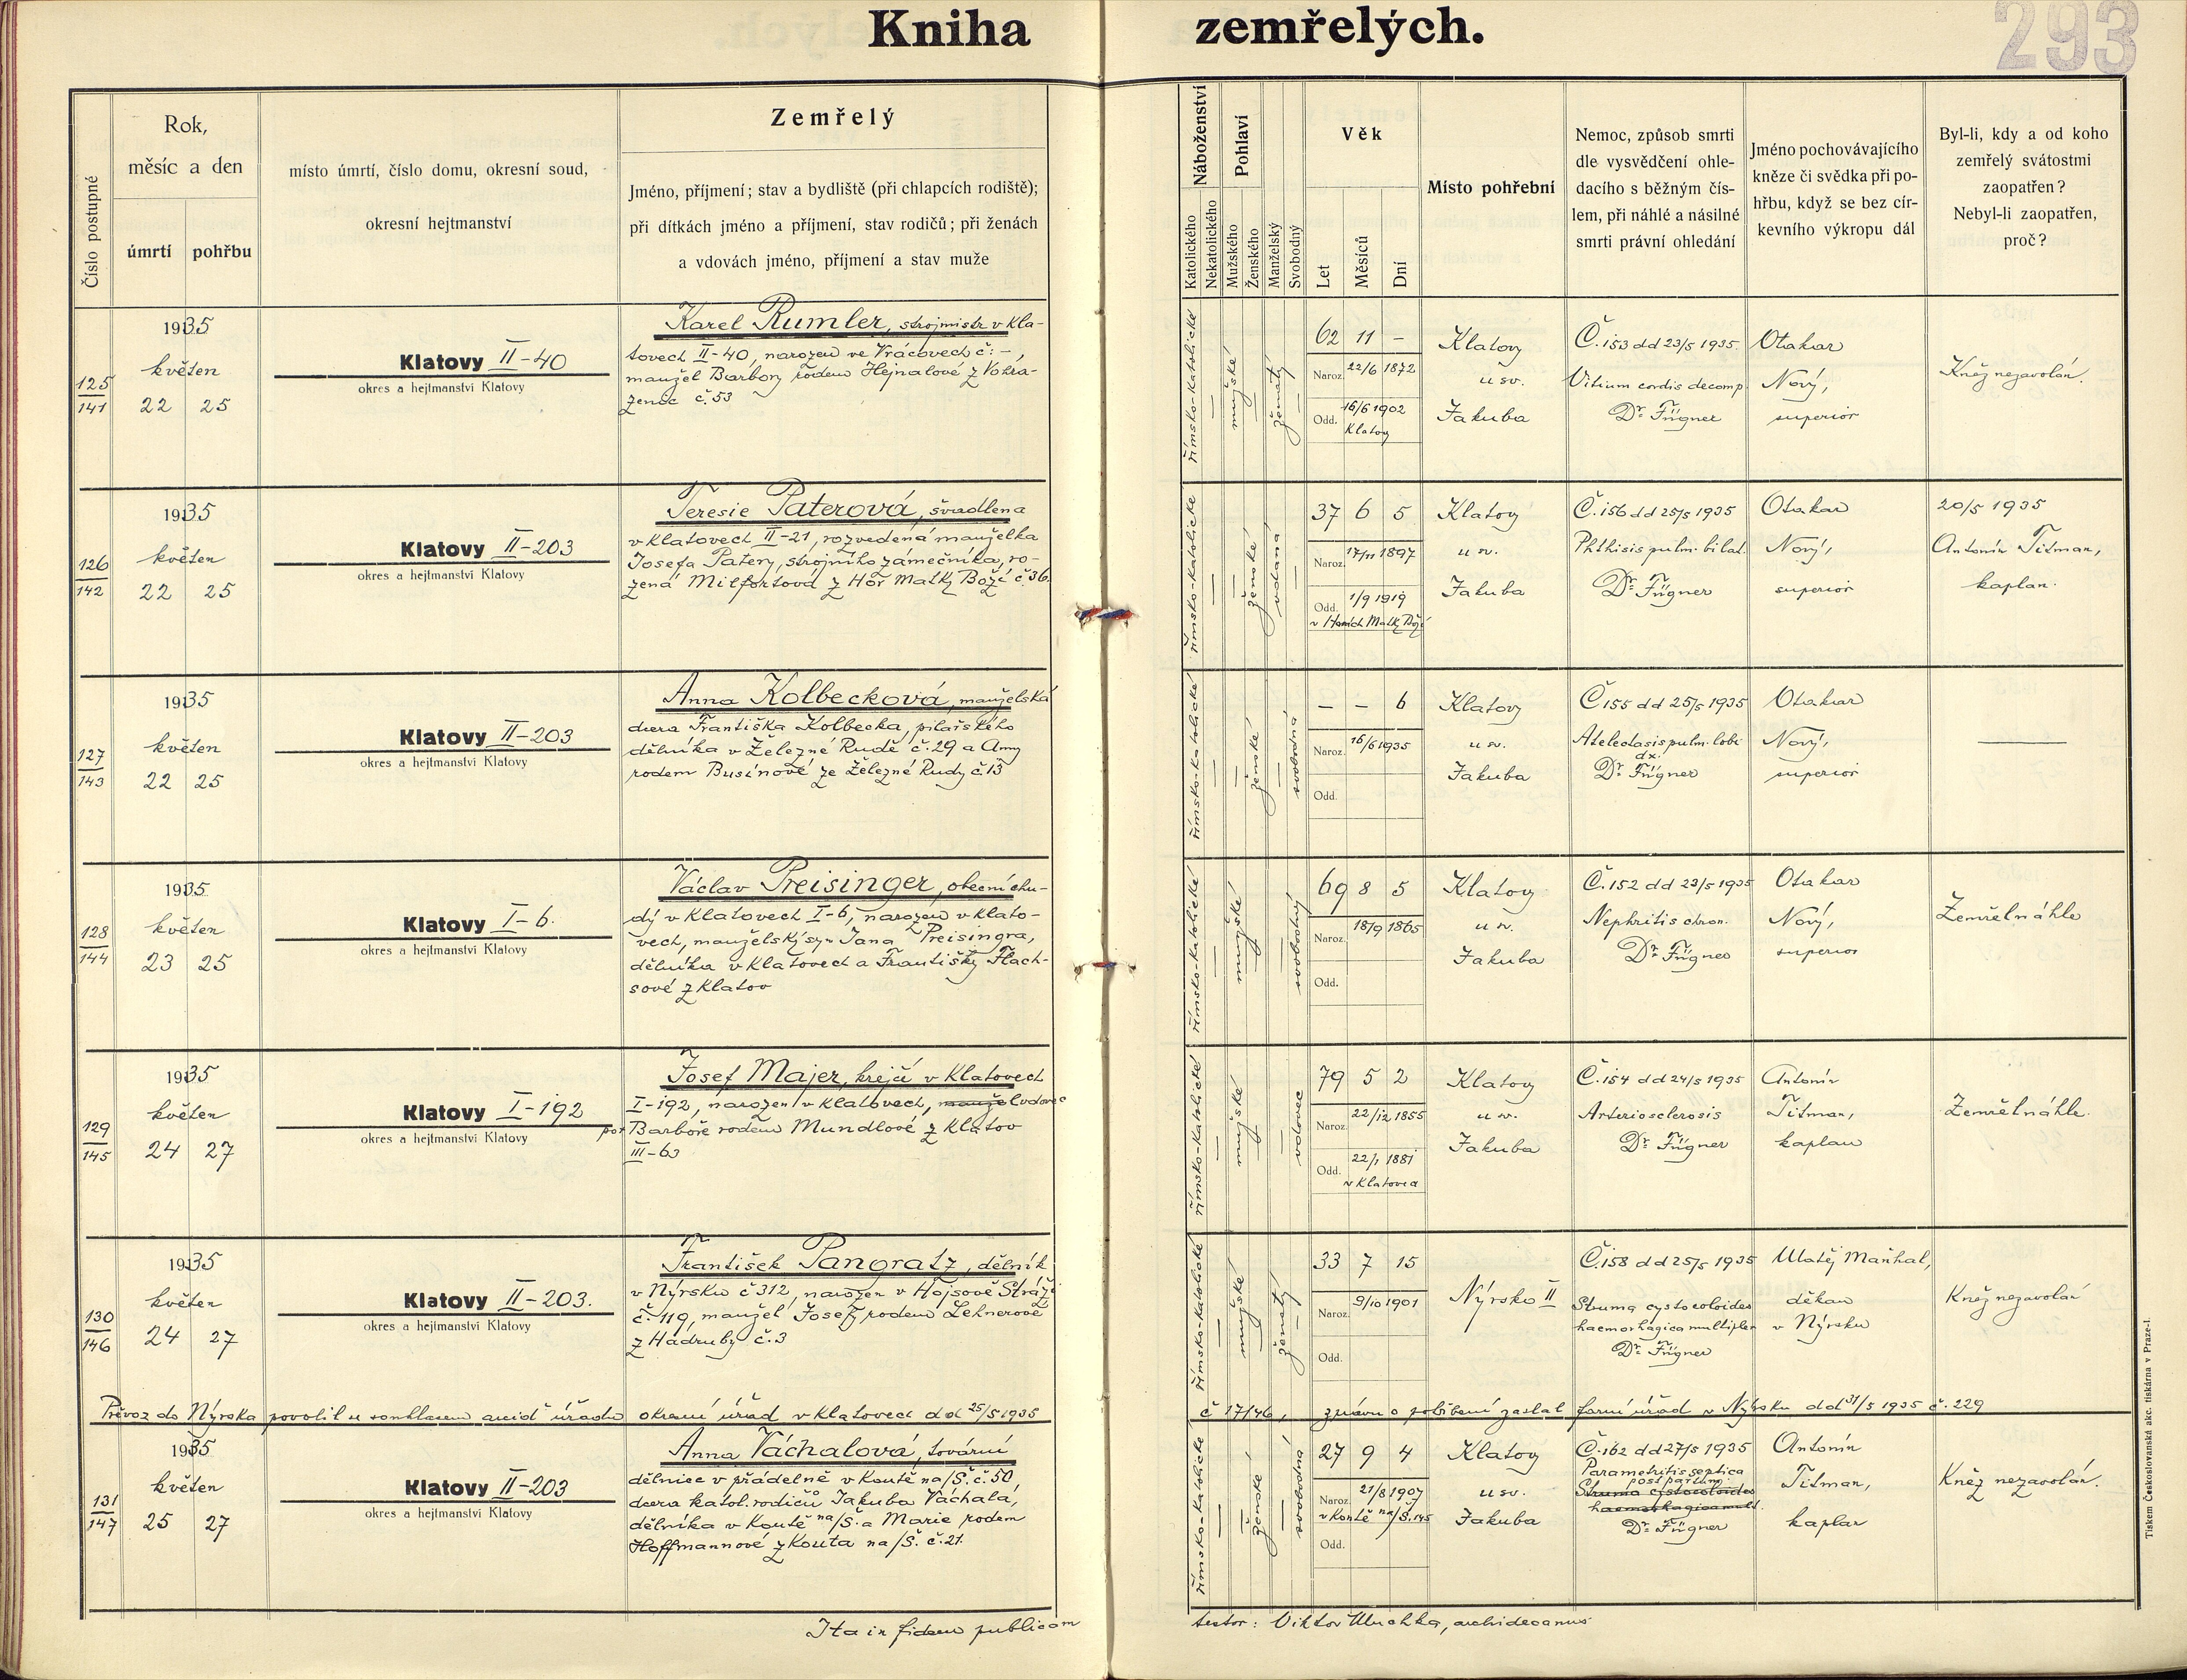 Kniha zemřelých.
293
Číslo postupné
Rok,
měsíc a den
úmrtí pohřbu
místo úmrtí, číslo domu, okresní soud,
okresní hejtmanství
Zemřelý
Jméno, příjmení; stav a bydliště (při chlapcích rodiště);
při dítkách jméno a příjmení, stav rodičů; při ženách
a vdovách jméno, příjmení a stav muže
Náboženství
Katolického
Nekatolického
Pohlaví
Mužského
Ženského
Manželský
Svobodný
Věk
Let
Měsíců
Dní
Místo pohřební
Nemoc, způsob smrti
dle vysvědčení ohle-
dacího s běžným čís-
lem, při náhlé a násilné
smrti právní ohledání
Jméno pochovávajícího
kněze či svědka při po-
hřbu, když se bez cír-
kevního výkropu dál
Byl-li, kdy a od koho
zemřelý svátostmi
zaopatřen?
Nebyl-li zaopatřen,
proč?
125
141
1935
květen
22 25
Klatovy II-40
okres a hejtmanství Klatovy
Karel Rumler, strojmistr v Kla-
tovech II-40, narozen ve Vrácovech č: -,
manžel Barbory rodem Hejnalové z Vokra-
zenec č. 53
římsko-katolické
mužské
ženatý
62 11 –
Naroz. 22/6 1872
Odd. 16/6 1902
Klatovy
Klatovy
u sv.
Jakuba
Č. 153 dd 23/5 1935.
Vitium cordis decomp.
Dr. Fügner
Otakar
Nový,
superior
Kněz nezavolán.
126
142
1935
květen
22 25
Klatovy II-203
okres a hejtmanství Klatovy
Teresie Paterová, švadlena
v Klatovech II-21, rozvedená manželka
Josefa Patery, strojního zámečníka, ro-
zená Milfortová z Hor Matky Boží č. 36.
římsko-katolické
ženské
vdaná
37 6 5
Naroz. 17/11 1897
Odd. 1/9 1919
v Horách Matky Boží
Klatovy
u sv.
Jakuba
Č. 156 dd 25/5 1935
Phthisis pulm. bilat.
Dr. Fügner
Otakar
Nový,
superior
20/5 1935
Antonín Titman,
kaplan.
127
143
1935
květen
22 25
Klatovy II-203
okres a hejtmanství Klatovy
Anna Kolbecková, manželská
dcera Františka Kolbecka, pilařského
dělníka v Železné Rudě č. 29 a Anny
rodem Businové ze Železné Rudy č. 13
římsko-katolické
ženské
svobodná
– – 6
Naroz. 16/6 1935
Odd.
Klatovy
u sv.
Jakuba
Č 155 dd 25/5 1935
Atelectasis pulm. lobi
dx.
Dr. Fügner
Otakar
Nový,
superior
128
144
1935
květen
23 25
Klatovy I-6.
okres a hejtmanství Klatovy
Václav Preisinger, obecní chu-
dý v Klatovech I-6, narozen v Klato-
vech, manželský syn Jana Preisingra,
dělníka v Klatovech a Františky Flach-
sové z Klatov
římsko-katolické
mužské
svobodný
69 8 5
Naroz. 18/9 1865
Odd.
Klatovy
u sv.
Jakuba
Č. 152 dd 23/5 1935
Nephritis chron.
Dr. Fügner
Otakar
Nový,
superior
Zemřel náhle
129
145
1935
květen
24 27
Klatovy I-192
okres a hejtmanství Klatovy
Josef Majer, krejčí v Klatovech
I-192, narozen v Klatovech, manžel vdovec
po Barboře rodem Mundlové z Klatov
III-63
římsko-katolické
mužské
vdovec
79 5 2
Naroz. 22/12 1855
Odd. 22/1 1881
v Klatovech
Klatovy
u sv.
Jakuba
Č. 154 dd 24/5 1935
Arteriosclerosis
Dr. Fügner
Antonín
Titman,
kaplan
Zemřel náhle.
130
146
1935
květen
24 27
Klatovy II-203.
okres a hejtmanství Klatovy
František Pangratz, dělník
v Nýrsku č 312, narozen v Hojsově Stráži
č. 119, manžel Josefy rodem Lehnerové
z Hadruby č. 3
římsko-katolické
mužské
ženatý
33 7 15
Naroz. 9/10 1901
Odd.
Nýrsko II
Č. 158 dd 25/5 1935
Struma cystocoloides
haemorhagica multiplex
Dr. Fügner
Matěj Maňhal,
děkan
v Nýrsku
Kněz nezavolán
Převoz do Nýrska povolil se souhlasem arcid. úřadu okresní úřad v Klatovech dd 25/5 1935
č 17146, zprávu o pohřbení zaslal farní úřad v Nýrsku dd 31/5 1935 č. 229
131
147
1935
květen
25 27
Klatovy II-203
okres a hejtmanství Klatovy
Anna Váchalová, tovární
dělnice v přádelně v Koutě na/Š. č. 50
dcera katol. rodičů Jakuba Váchala,
dělníka v Koutě na/Š. a Marie rodem
Hoffmannové z Kouta na/Š. č. 21.
římsko-katolické
ženské
svobodná
27 9 4
Naroz. 21/8 1907
v Koutě na/Š. 145
Odd.
Klatovy
u sv.
Jakuba
Č. 162 dd 27/5 1935
Parametritis septica
post partum.
Struma cystocoloides
haemorhagica mult.
Dr. Fügner
Antonín
Titman,
kaplan
Kněz nezavolán.
Ita in fidem publicam
testor: Viktor, archidecanus
Tiskem Československá akc. tiskárna v Praze-I.